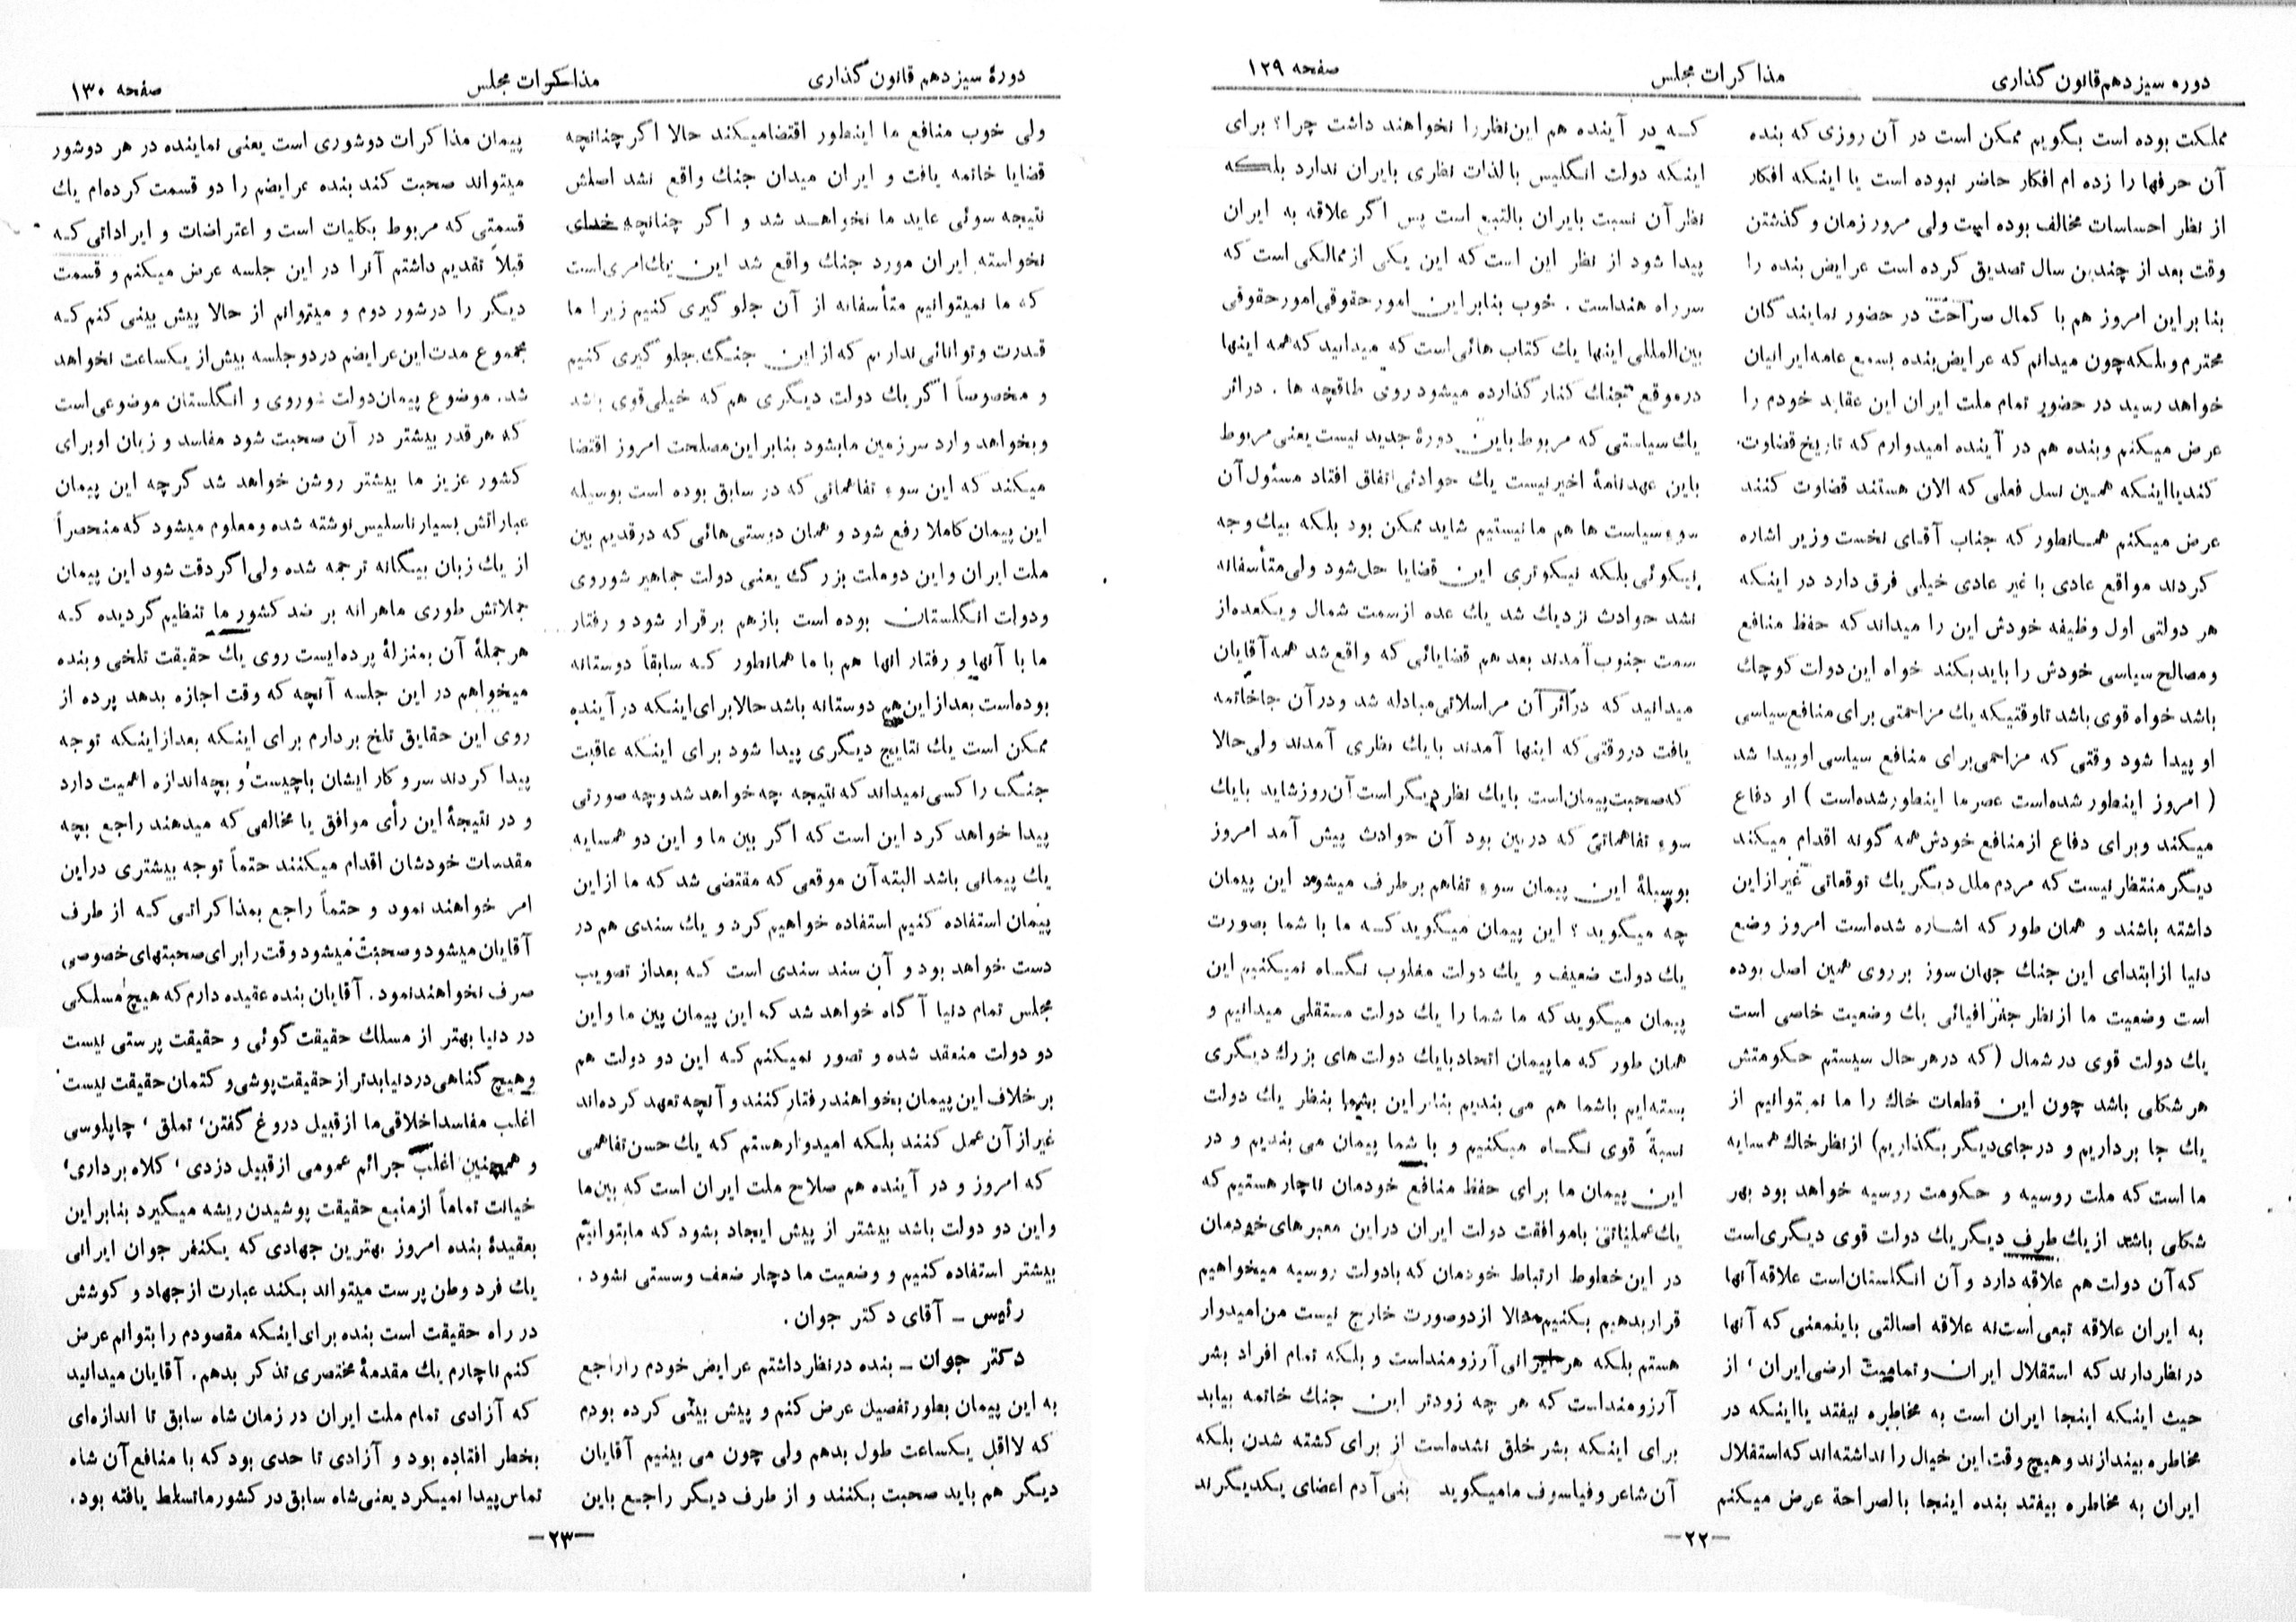 دوره سیزدهم قانون گذاری
مذاکرات مجلس
صفحه ۱۲۹
مملکت بوده است بگویم ممکن است در آن روزی که بنده
آن حرفها را زده ام افکار حاضر نبوده است یا اینکه افکار
از نظر احساسات مخالف بوده است ولی مرور زمان و گذشتن
وقت بعد از چندین سال تصدیق کرده است عرایض بنده را
بنا براین امروز هم با کمال صراحت در حضور نمایند گان
محترم وبلکه چون میدانم که عرایض بنده بسمع عامه ایرانیان
خواهد رسید در حضور تمام ملت ایران این عقاید خودم را
عرض میکنم وبنده هم در آینده امیدوارم که تاریخ قضاوت
کند یا اینکه همین نسل فعلی که الان هستند قضاوت کنند
عرض میکنم همانطور که جناب آقای نخست وزیر اشاره
کردند مواقع عادی با غیر عادی خیلی فرق دارد در اینکه
هر دولتی اول وظیفه خودش این را میداند که حفظ منافع
ومصالح سیاسی خودش را باید بکند خواه این دولت کوچك
باشد خواه قوی باشد تاوقتیکه یك مزاحمتی برای منافع سیاسی
او پیدا شود وقتی که مزاحمی برای منافع سیاسی اوپیدا شد
( امروز اینطور شده است عصر ما اینطور شده است ) او دفاع
میکند وبرای دفاع از منافع خودش همه گونه اقدام میکند
دیگر منتظر نیست که مردم ملل دیگر یك توقعاتی غیر از این
داشته باشند و همان طور که اشاره شده است امروز وضع
دنیا از ابتدای این جنك جهان سوز بر روی همین اصل بوده
است وضعیت ما از نظر جغرافیائی یك وضعیت خاصی است
یك دولت قوی در شمال (که در هر حال سیستم حکومتش
هر شکلی باشد چون این قطعات خاك را ما نمیتوانیم از
یك جا برداریم و در جای دیگر بگذاریم) از نظر خاك همسایه
ما است که ملت روسیه و حکومت روسیه خواهد بود بهر
شکلی باشد از یك طرف دیگر یك دولت قوی دیگری است
که آن دولت هم علاقه دارد و آن انگلستان است علاقه آنها
به ایران علاقه تبعی است نه علاقه اصالتی باینمعنی که آنها
در نظر دارند که استقلال ایران و تمامیت ارضی ایران ، از
حیث اینکه اینجا ایران است به مخاطره نیفتد یا اینکه در
مخاطره بیندازند و هیچ وقت این خیال را نداشته اند که استقلال
ایران به مخاطره بیفتد بنده اینجا بالصراحة عرض میکنم
که در آینده هم این نظر را نخواهند داشت چرا؟ برای
اینکه دولت انگلیس بالذات نظری بایران ندارد بلکه
نظر آن نسبت بایران بالتبع است پس اگر علاقه به ایران
پیدا شود از نظر این است که این یکی از ممالکی است که
سر راه هند است . خوب بنابراین امور حقوقی امور حقوقی
بین المللی اینها یك کتاب هائی است که میدانید که همه اینها
در موقع جنك کنار گذارده میشود روی طاقچه ها . در اثر
یك سیاستی که مربوط باین دورۀ جدید نیست یعنی مربوط
باین عهدنامۀ اخیر نیست یك حوادثی اتفاق افتاد مسئول آن
سوء سیاست ها هم ما نیستیم شاید ممکن بود بلکه بیك وجه
نیکوئی بلکه نیکوتری این قضایا حل شود ولی متأسفانه
نشد حوادث نزدیك شد یك عده از سمت شمال ویکعده از
سمت جنوب آمدند بعد هم قضایائی که واقع شد همه آقایان
میدانید که در اثر آن مراسلاتی مبادله شد ودر آن جا خاتمه
یافت در وقتی که اینها آمدند با یك نظری آمدند ولی حالا
که صحبت پیمان است با یك نظر دیگر است آن روز شاید با یك
سوء تفاهماتی که در بین بود آن حوادث پیش آمد امروز
بوسیلۀ این پیمان سوء تفاهم بر طرف میشود این پیمان
چه میگوید ؟ این پیمان میگوید که ما با شما بصورت
یك دولت ضعیف و یك دولت مغلوب نگاه نمیکنیم این
پیمان میگوید که ما شما را یك دولت مستقلی میدانیم و
همان طور که ما پیمان اتحاد با یك دولت های بزرك دیگری
بسته ایم باشما هم می بندیم بنابر این بشما بنظر یك دولت
نسبةً قوی نگاه میکنیم و با شما پیمان می بندیم و در
این پیمان ما برای حفظ منافع خودمان ناچار هستیم که
یك عملیاتی باموافقت دولت ایران در این معبرهای خودمان
در این خطوط ارتباط خودمان که بادولت روسیه میخواهیم
قرار بدهیم بکنیم حالا از دو صورت خارج نیست من امیدوار
هستم بلکه هر ایرانی آرزومند است و بلکه تمام افراد بشر
آرزومند است که هر چه زودتر این جنك خاتمه بیابد
برای اینکه بشر خلق نشده است از برای کشته شدن بلکه
آن شاعر و فیلسوف ما میگوید بنی آدم اعضای یکدیگرند
—۲۲—
دورۀ سیزدهم قانون گذاری
مذاکرات مجلس
صفحه ۱۳۰
ولی خوب منافع ما اینطور اقتضا میکند حالا اگر چنانچه
قضایا خاتمه یافت و ایران میدان جنك واقع نشد اصلش
نتیجه سوئی عاید ما نخواهد شد و اگر چنانچه خدای
نخواسته ایران مورد جنك واقع شد این یك امری است
که ما نمیتوانیم متأسفانه از آن جلو گیری کنیم زیرا ما
قدرت و توانائی نداریم که از این جنگ جلو گیری کنیم
و مخصوصاً اگر یك دولت دیگری هم که خیلی قوی باشد
وبخواهد وارد سر زمین ما بشود بنابر این مصلحت امروز اقتضا
میکند که این سوء تفاهماتی که در سابق بوده است بوسیله
این پیمان کاملا رفع شود و همان دوستی هائی که در قدیم بین
ملت ایران واین دو ملت بزرگ یعنی دولت جماهیر شوروی
ودولت انگلستان بوده است باز هم بر قرار شود و رفتار
ما با آنها و رفتار انها هم با ما همانطور که سابقاً دوستانه
بوده است بعد از این هم دوستانه باشد حالا برای اینکه در آینده
ممکن است یك نتایج دیگری پیدا شود برای اینکه عاقبت
جنگ را کسی نمیداند که نتیجه چه خواهد شد وچه صورتی
پیدا خواهد کرد این است که اگر بین ما و این دو همسایه
یك پیمانی باشد البته آن موقعی که مقتضی شد که ما از این
پیمان استفاده کنیم استفاده خواهیم کرد و یك سندی هم در
دست خواهد بود و آن سند سندی است که بعد از تصویب
مجلس تمام دنیا آگاه خواهد شد که این پیمان بین ما و این
دو دولت منعقد شده و تصور نمیکنم که این دو دولت هم
بر خلاف این پیمان بخواهند رفتار کنند و آنچه تعهد کرده اند
غیر از آن عمل کنند بلکه امیدوار هستم که یك حسن تفاهمی
که امروز و در آینده هم صلاح ملت ایران است که بین ما
واین دو دولت باشد بیشتر از پیش ایجاد بشود که ما بتوانیم
بیشتر استفاده کنیم و وضعیت ما دچار ضعف وسستی نشود .
رئیس – آقای دکتر جوان .
دکتر جوان – بنده در نظر داشتم عرایض خودم را راجع
به این پیمان بطور تفصیل عرض کنم و پیش بینی کرده بودم
که لااقل یکساعت طول بدهم ولی چون می بینیم آقایان
دیگر هم باید صحبت بکنند و از طرف دیگر راجع باین
پیمان مذاکرات دو شوری است یعنی نماینده در هر دو شور
میتواند صحبت کند بنده عرایضم را دو قسمت کرده ام یك
قسمتی که مربوط بکلیات است و اعتراضات و ایراداتی که
قبلاً تقدیم داشتم آنرا در این جلسه عرض میکنم و قسمت
دیگر را در شور دوم و میتوانم از حالا پیش بینی کنم که
مجموع مدت این عرایضم در دو جلسه بیش از یکساعت نخواهد
شد . موضوع پیمان دولت شوروی و انگلستان موضوعی است
که هر قدر بیشتر در آن صحبت شود مفاسد و زبان او برای
کشور عزیز ما بیشتر روشن خواهد شد گرچه این پیمان
عباراتش بسیار ناسلیس نوشته شده ومعلوم میشود که منحصراً
از یك زبان بیگانه ترجمه شده ولی اگر دقت شود این پیمان
جملاتش طوری ماهرانه بر ضد کشور ما تنظیم گردیده که
هر جملۀ آن بمنزلۀ پرده ایست روی یك حقیقت تلخی وبنده
میخواهم در این جلسه آنچه که وقت اجازه بدهد پرده از
روی این حقایق تلخ بردارم برای اینکه بعد از اینکه توجه
پیدا کردند سر و کار ایشان با چیست و بچه اندازه اهمیت دارد
و در نتیجۀ این رأی موافق یا مخالفی که میدهند راجع بچه
مقدسات خودشان اقدام میکنند حتماً توجه بیشتری در این
امر خواهند نمود و حتماً راجع بمذاکراتی که از طرف
آقایان میشود و صحبت میشود وقت را برای صحبتهای خصوصی
صرف نخواهند نمود . آقایان بنده عقیده دارم که هیچ مسلکی
در دنیا بهتر از مسلك حقیقت گوئی و حقیقت پرستی نیست
وهیچ گناهی در دنیا بدتر از حقیقت پوشی و کتمان حقیقت نیست
اغلب مفاسد اخلاقی ما از قبیل دروغ گفتن ، تملق ، چاپلوسی
و همچنین اغلب جرائم عمومی از قبیل دزدی ، کلاه برداری ،
خیانت تماماً از منبع حقیقت پوشیدن ریشه میگیرد بنابر این
بعقیدۀ بنده امروز بهترین جهادی که یکنفر جوان ایرانی
یك فرد وطن پرست میتواند بکند عبارت از جهاد و کوشش
در راه حقیقت است بنده برای اینکه مقصودم را بتوانم عرض
کنم ناچارم یك مقدمۀ مختصری تذکر بدهم . آقایان میدانید
که آزادی تمام ملت ایران در زمان شاه سابق تا اندازه ای
بخطر افتاده بود و آزادی تا حدی بود که با منافع آن شاه
تماس پیدا نمیکرد یعنی شاه سابق در کشور ما تسلط یافته بود .
—۲۳—